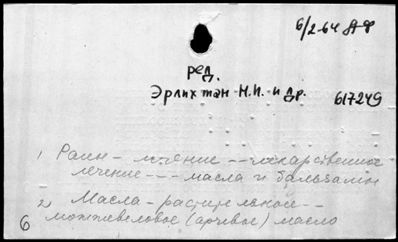 6/2-64 АФ
ред.
Эрлихман Н.И. и др.
617249
1 Раны - лечение -- лекарственное
лечение --- масла и бальзамы
2 Масла - растительное --
можжевеловое (арчевое) масло
6